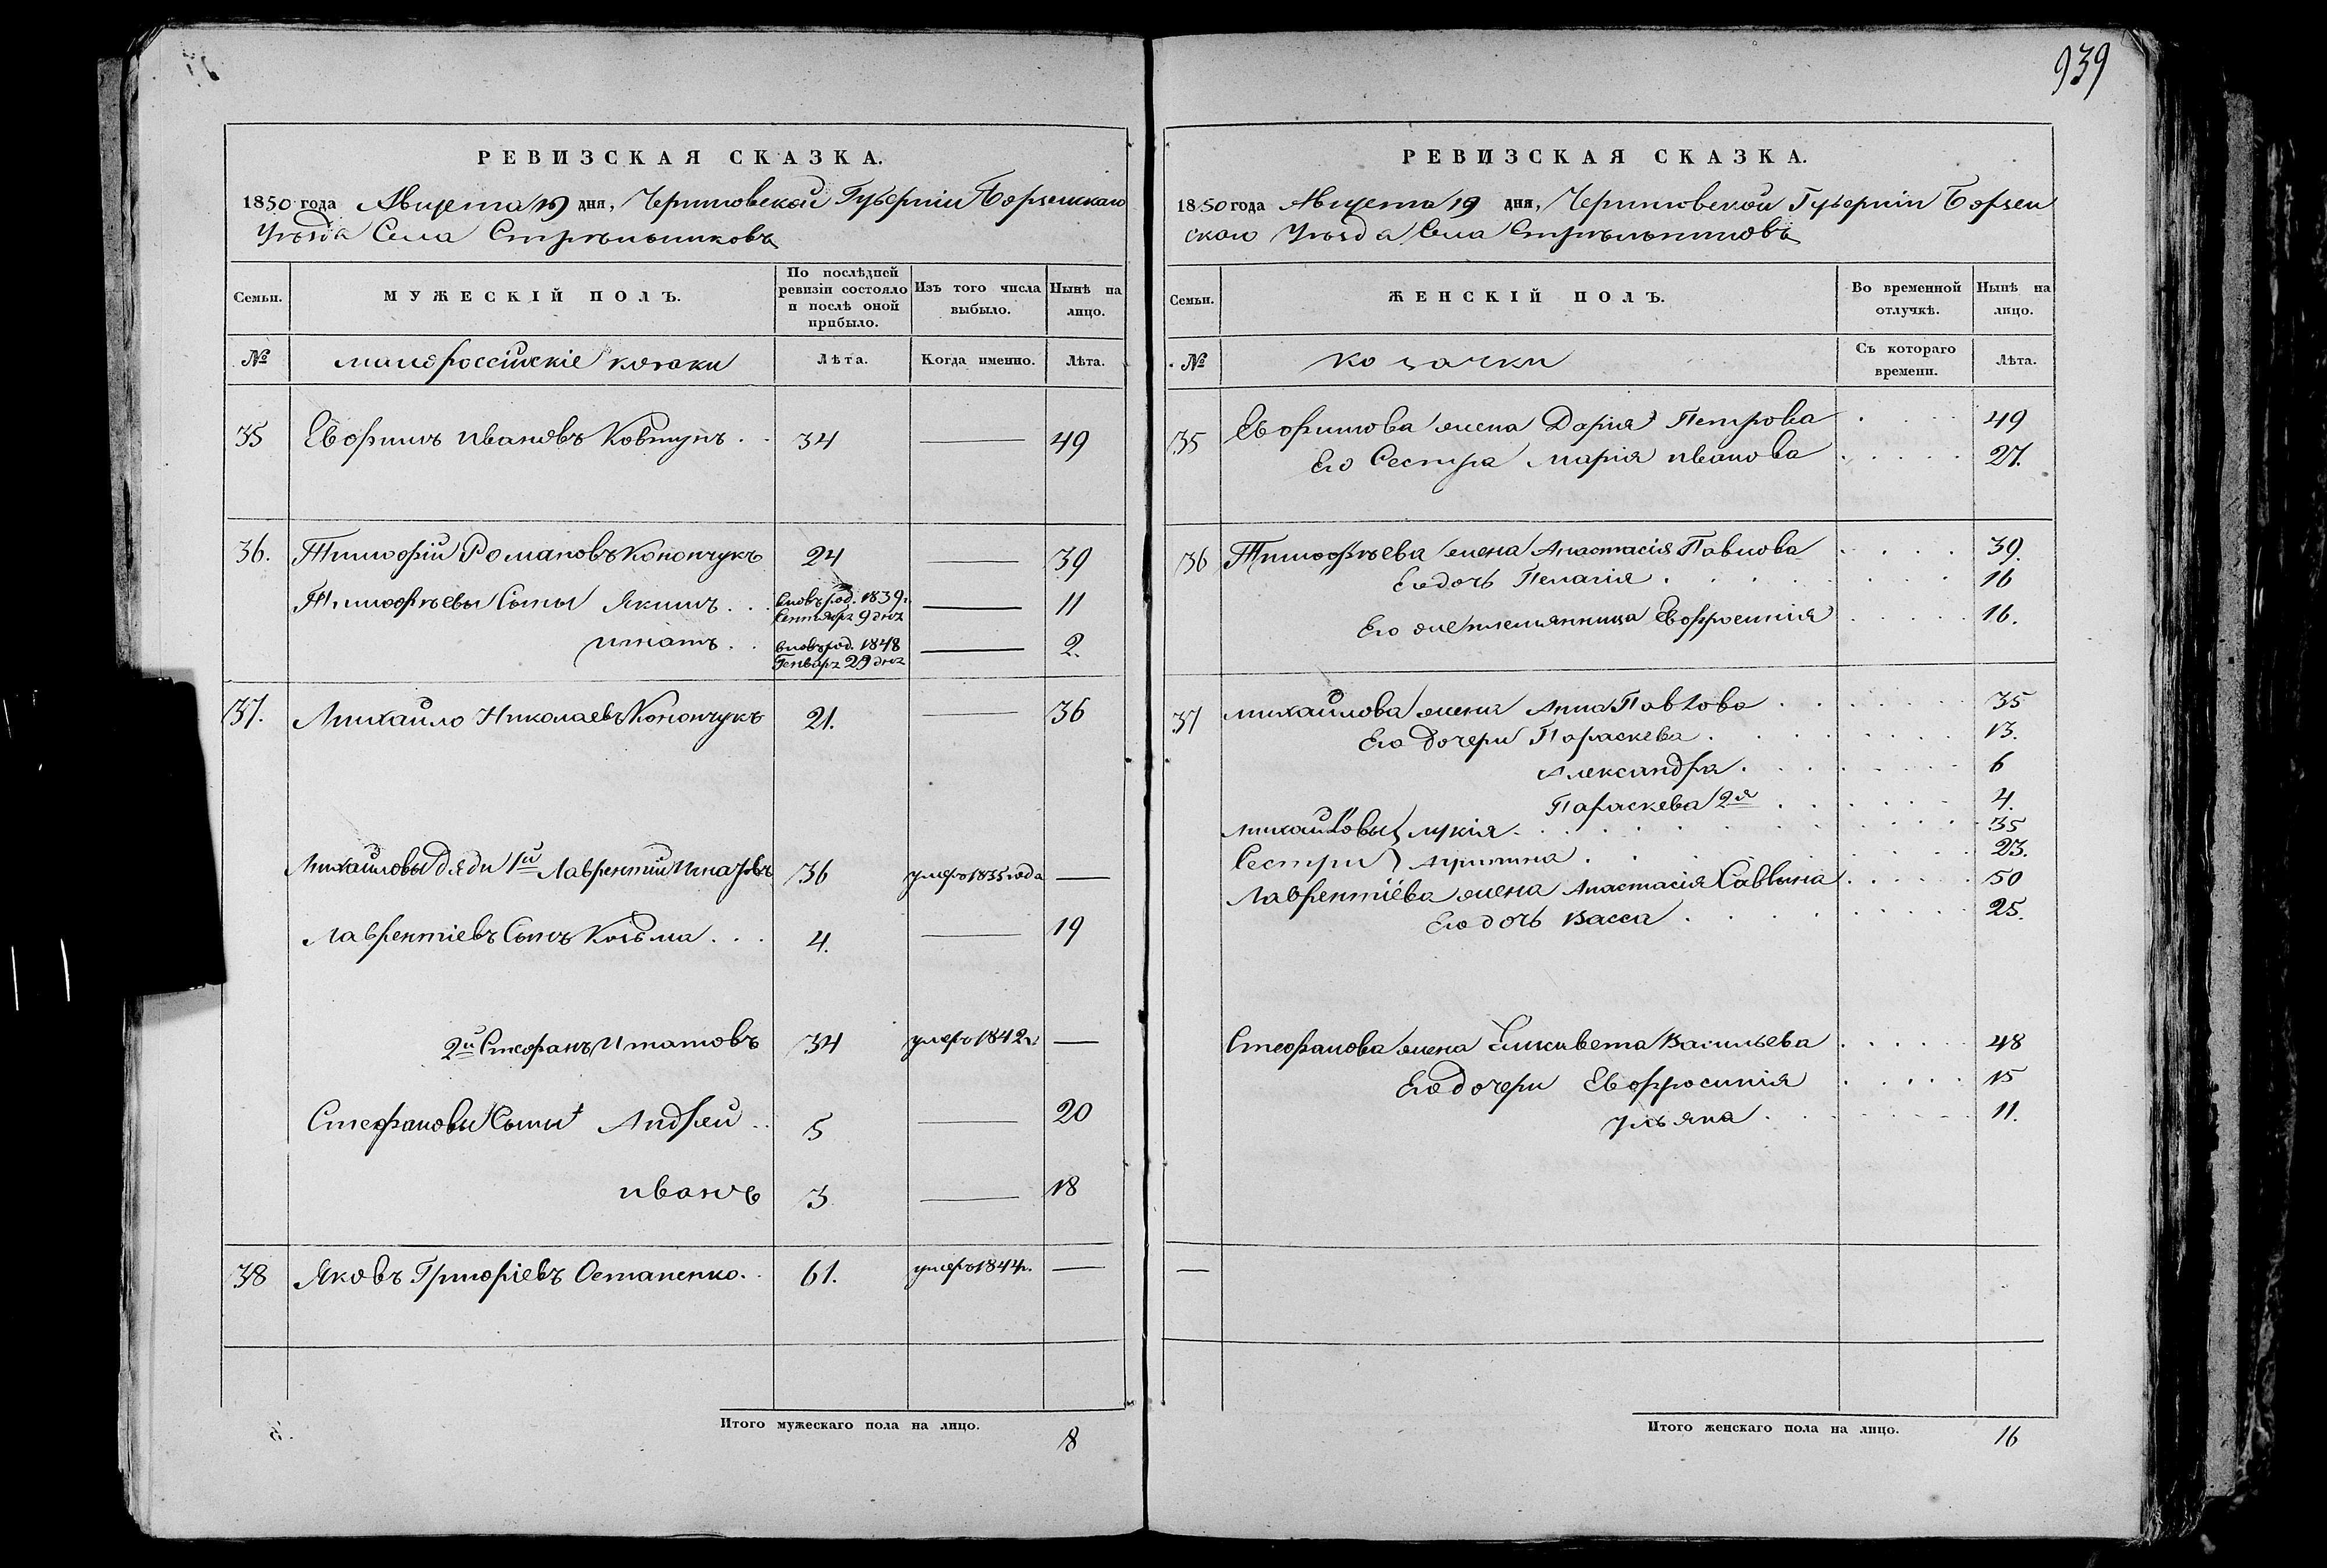 939
РЕВИЗСКАЯ СКАЗКА.
1850 года Августа 19 дня, Черниговской Губерніи Борзенскаго
Уѣзда Села Стрѣльниковъ
Семьи.
МУЖЕСКІЙ ПОЛЪ.
По послѣдней ревизіи состояло и послѣ оной прибыло.
Изъ того числа выбыло.
Нынѣ на лицо.
№
малороссійскіе козаки
Лѣта.
Когда именно.
Лѣта.
35 Евфимъ Ивановъ Ковтунъ 34 — 49
36. Тимофій Романовъ Конончукъ 24 — 39
Тимофѣевы Сыны Якимъ вновь род. 1839 г. Сентября 9 дня — 11
Игнатъ вновь род. 1848 Генваря 29 дня — 2.
37. Михайло Николаевъ Конончукъ 21. — 36
Михайловы дяди 1й Лаврентій Игнатовъ 36 умеръ 1835 года —
Лаврентіевъ Сынъ Козьма 4. — 19
2й Стефанъ Игнатовъ 34 умеръ 1842 г. —
Стефановы Сыны Андрей 5 — 20
Иванъ 3 — 18
38 Яковъ Григоріевъ Остапенко. 61. умеръ 1844 г. —
Итого мужескаго пола на лицо. 8
РЕВИЗСКАЯ СКАЗКА.
1850 года Августа 19 дня, Черниговской Губерніи Борзен
скаго Уѣзда Села Стрѣльниковъ
Семьи.
ЖЕНСКІЙ ПОЛЪ.
Во временной отлучкѣ.
Нынѣ на лицо.
№
козачки
Съ котораго времени.
Лѣта.
35 Евфимова жена Дарія Петрова 49
Его Сестра Марія Иванова 27.
36 Тимофѣева жена Анастасія Павлова 39.
Его дочь Пелагія 16
Его же племянница Евфросинія 16.
37 Михайлова жена Анна Павлова 35
Его дочери Параскева 13.
Александра 6
Параскева 2я 4.
Михайловы Лукія 35
Сестры Ирина 23.
Лаврентіева жена Анастасія Саввина 50
Его дочь Васса 25.
Стефанова жена Елисавета Васильева 48
Его дочери Евфросинія 15
Ульяна 11.
—
Итого женскаго пола на лицо. 16